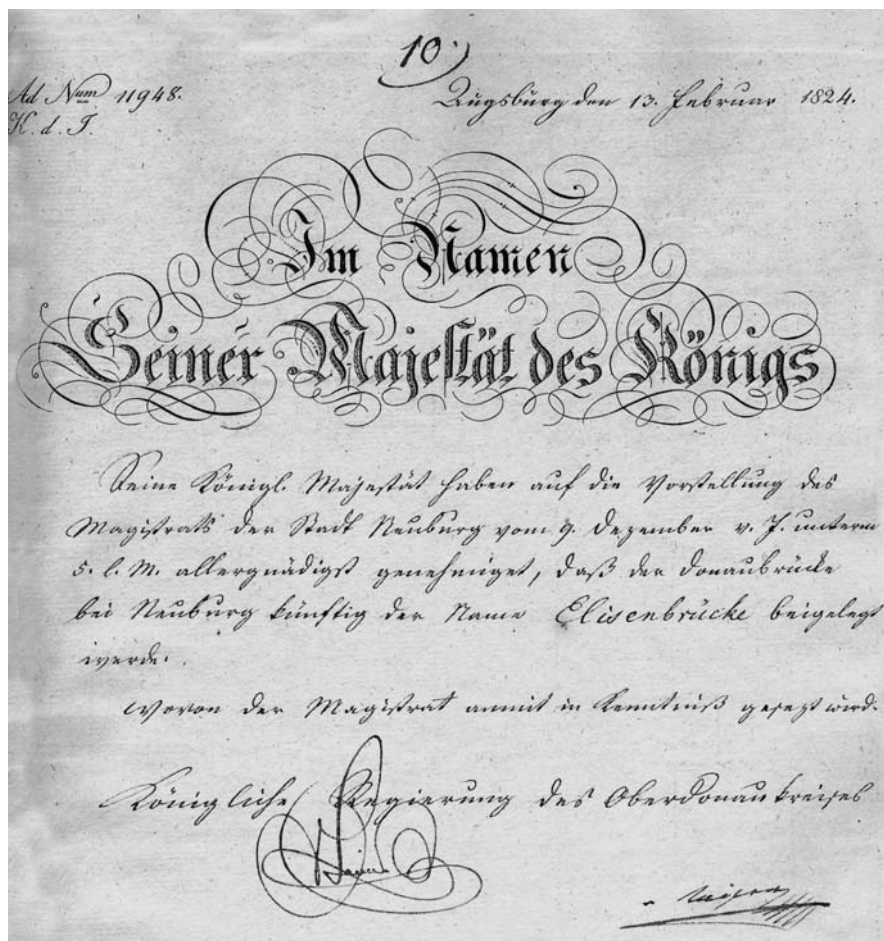 10.
Ad Num 11948.
Augsburg den 13. Februar 1824.
K. d. I.
Im Namen
Seiner Majestät des Königs
Seine Königl. Majestät haben auf die Vorstellung des
Magistrats der Stadt Neuburg vom 9. Dezember v. J. unterm
5. l. M. allergnädigst genehmiget, daß der Donaubrücke
bei Neuburg künftig der Name Elisenbrücke beigelegt
werde.
Wovon der Magistrat anmit in Kenntniß gesezt wird.
Königliche Regierung des Oberdonaukreises